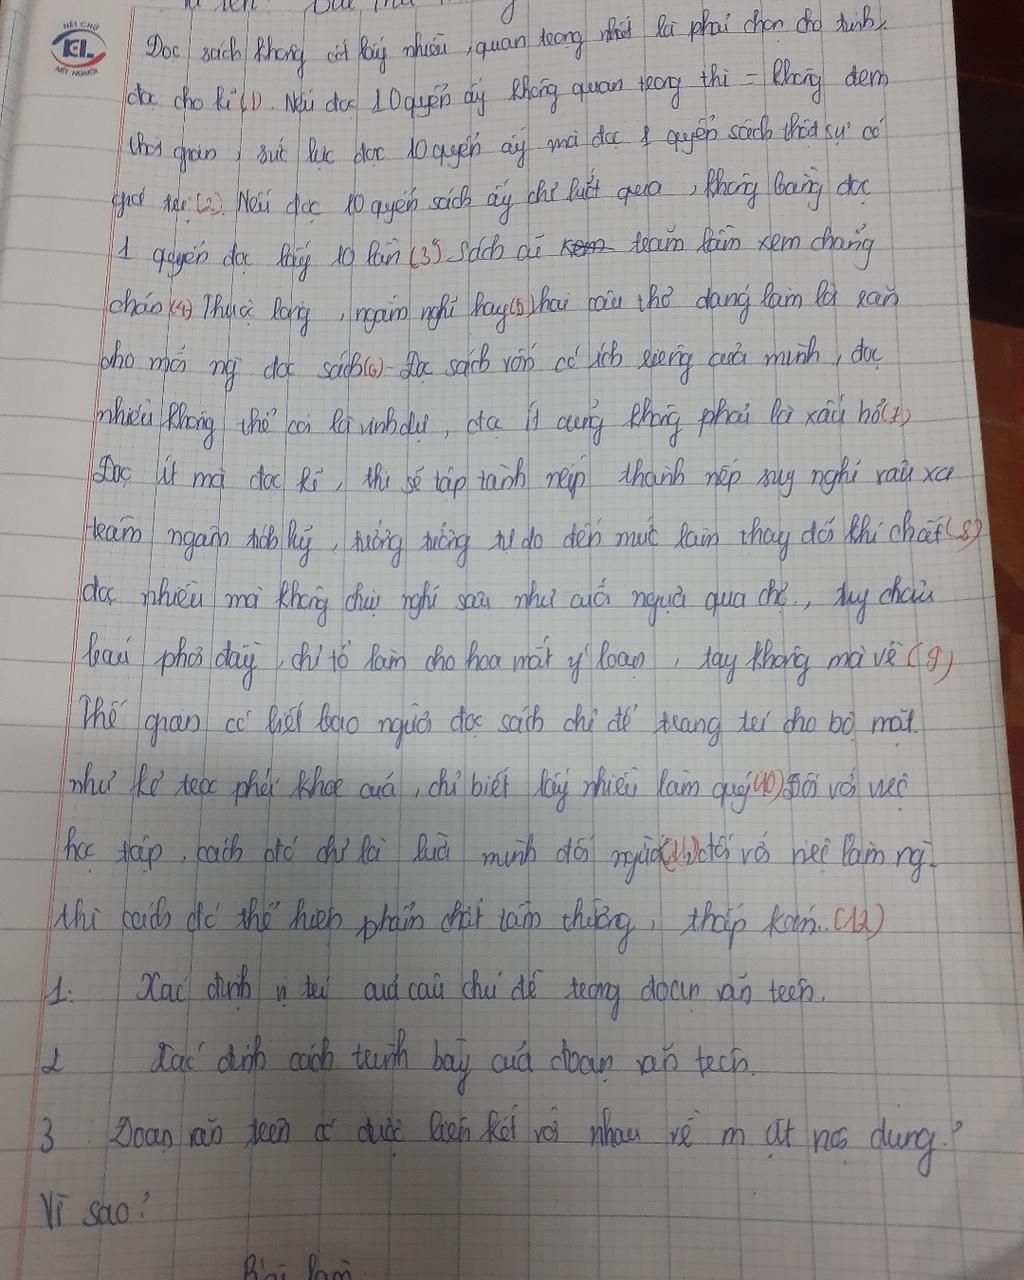 NÉT CHỮ
NẾT NGƯỜI
Đọc sách không cốt lấy nhiều, quan trọng nhất là phải chọn cho tinh,
đọc cho kĩ (1). Nếu đọc 10 quyển ấy không quan trọng thì = không đem
thời gian, sức lực đọc 10 quyển ấy mà đọc 1 quyển sách thật sự có
giá trị (2). Nếu đọc 10 quyển sách ấy chỉ lướt qua, không bằng đọc
1 quyển đọc lấy 10 lần (3) Sách cũ trăm lần xem chẳng
chán (4) Thuộc lòng, ngẫm nghĩ hay (5) hai câu thơ đáng làm lời răn
cho mỗi ng đọc sách (6) - Đọc sách vốn có ích riêng của mình, đọc
nhiều không thể coi là vinh dự, đọc ít cũng không phải là xấu hổ (7)
Đọc ít mà đọc kĩ, thì sẽ tập tành nếp thành nếp suy nghĩ sâu xa
trầm ngâm tích lũy, tưởng tượng tự do đến mức làm thay đổi khí chất (8)
đọc nhiều mà không chịu nghĩ sâu như cưỡi ngựa qua chợ, tuy châu
báu phơi đầy, chỉ tổ làm cho hoa mắt ý loạn, tay không mà về (9)
Thế gian có biết bao người đọc sách chỉ để trang trí cho bộ mặt
như kẻ trọc phú khoe của, chỉ biết lấy nhiều làm quý (10) Đối với việc
học tập, cách đó chỉ là lừa mình dối người (11) đối với việc làm ng
thì cách đó thể hiện phẩm chất tầm thường, thấp kém. (12)
1. Xác định vị trí của câu chủ đề trong đoạn văn trên.
2 Xác định cách trình bày của đoạn văn trên.
3. Đoạn văn trên có được liên kết với nhau về mặt nội dung?
Vì sao?
Bài làm